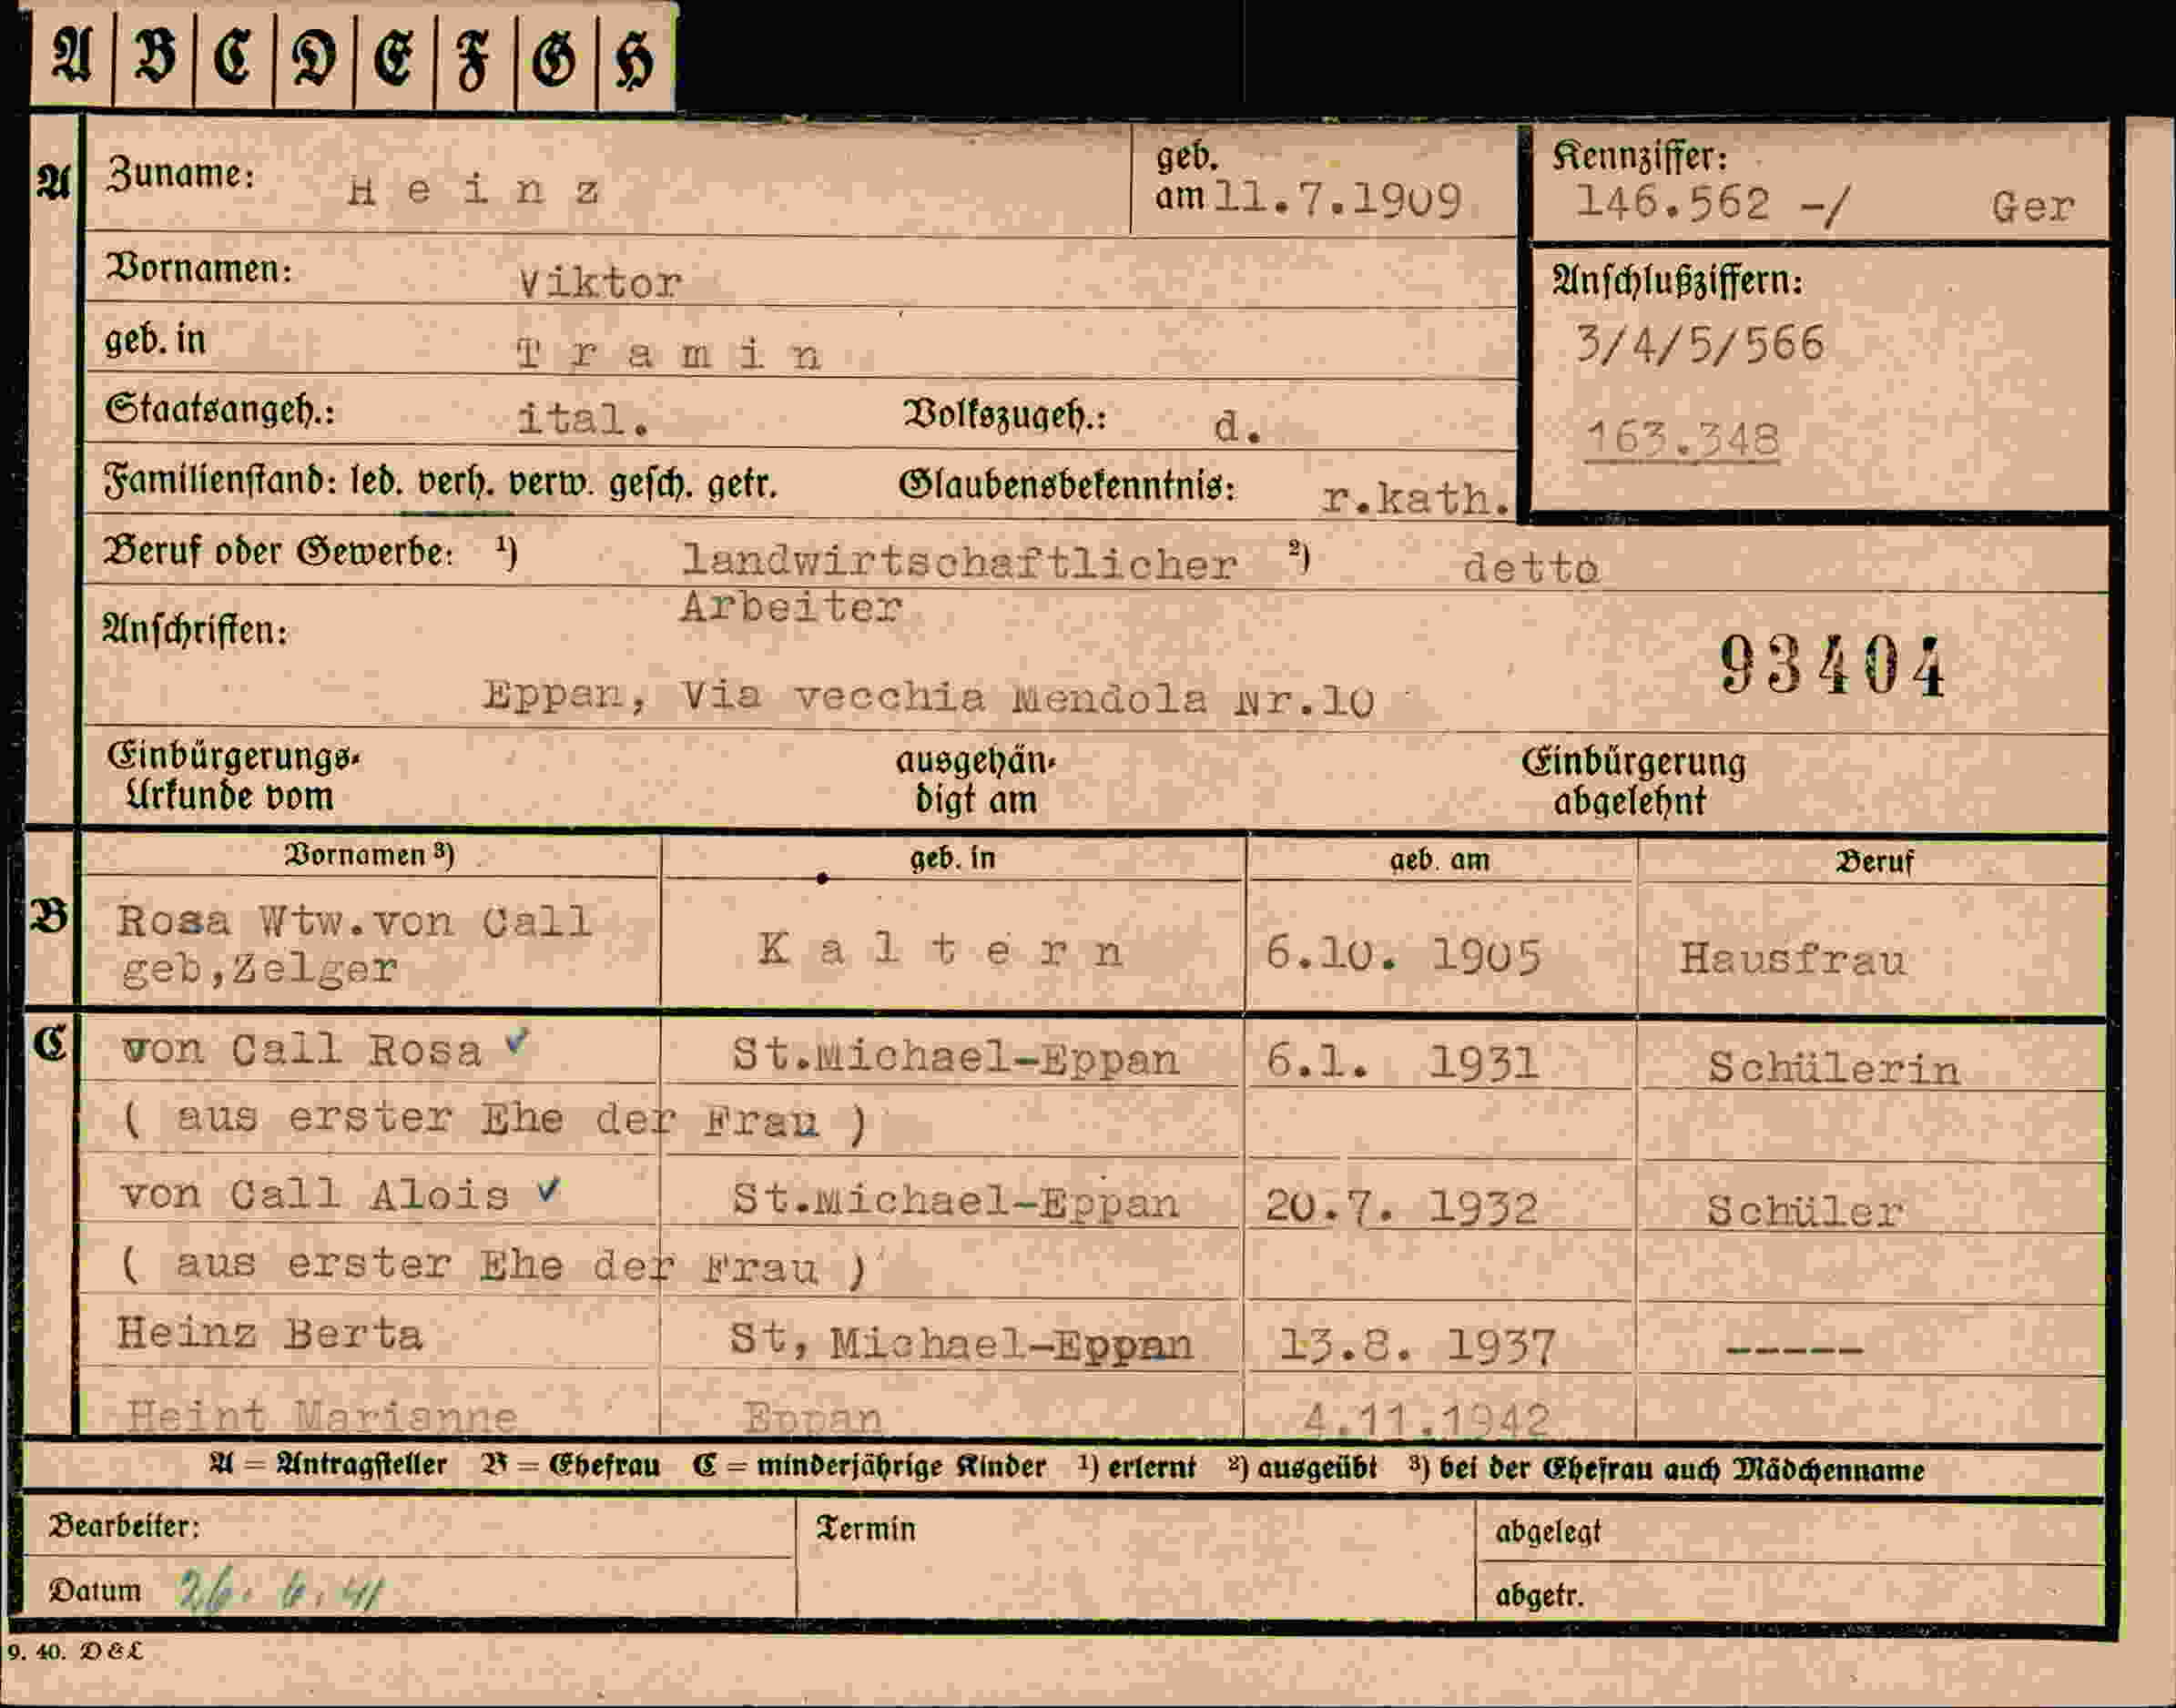 A B C D E F G H
A Zuname: Heinz geb. am 11.7.1909 Kennziffer: 146.562 -/ Ger
Vornamen: Viktor Anschlußziffern:
geb. in Tramin 3/4/5/566
Staatsangeh.: ital. Volkszugeh.: d. 163.348
Familienstand: led. verh. verw. gesch. getr. Glaubensbekenntnis: r.kath.
Beruf oder Gewerbe: ¹) landwirtschaftlicher ²) detto
Arbeiter
Anschriften: 93404
Eppan, Via vecchia Mendola Nr.10
Einbürgerungs- ausgehän- Einbürgerung
Urkunde vom digt am abgelehnt
Vornamen ³) geb. in geb. am Beruf
B Rosa Wtw.von Call
geb,Zelger Kaltern 6.10. 1905 Hausfrau
C von Call Rosa ✓ St.Michael-Eppan 6.1. 1931 Schülerin
( aus erster Ehe der Frau )
von Call Alois ✓ St.Michael-Eppan 20.7. 1932 Schüler
( aus erster Ehe der Frau )
Heinz Berta St, Michael-Eppan 13.8. 1937 -----
Heint Marianne Eppan 4.11.1942
A = Antragsteller B = Ehefrau C = minderjährige Kinder ¹) erlernt ²) ausgeübt ³) bei der Ehefrau auch Mädchenname
Bearbeiter: Termin abgelegt
Datum 26. 6. 41 abgetr.
9. 40. D & L